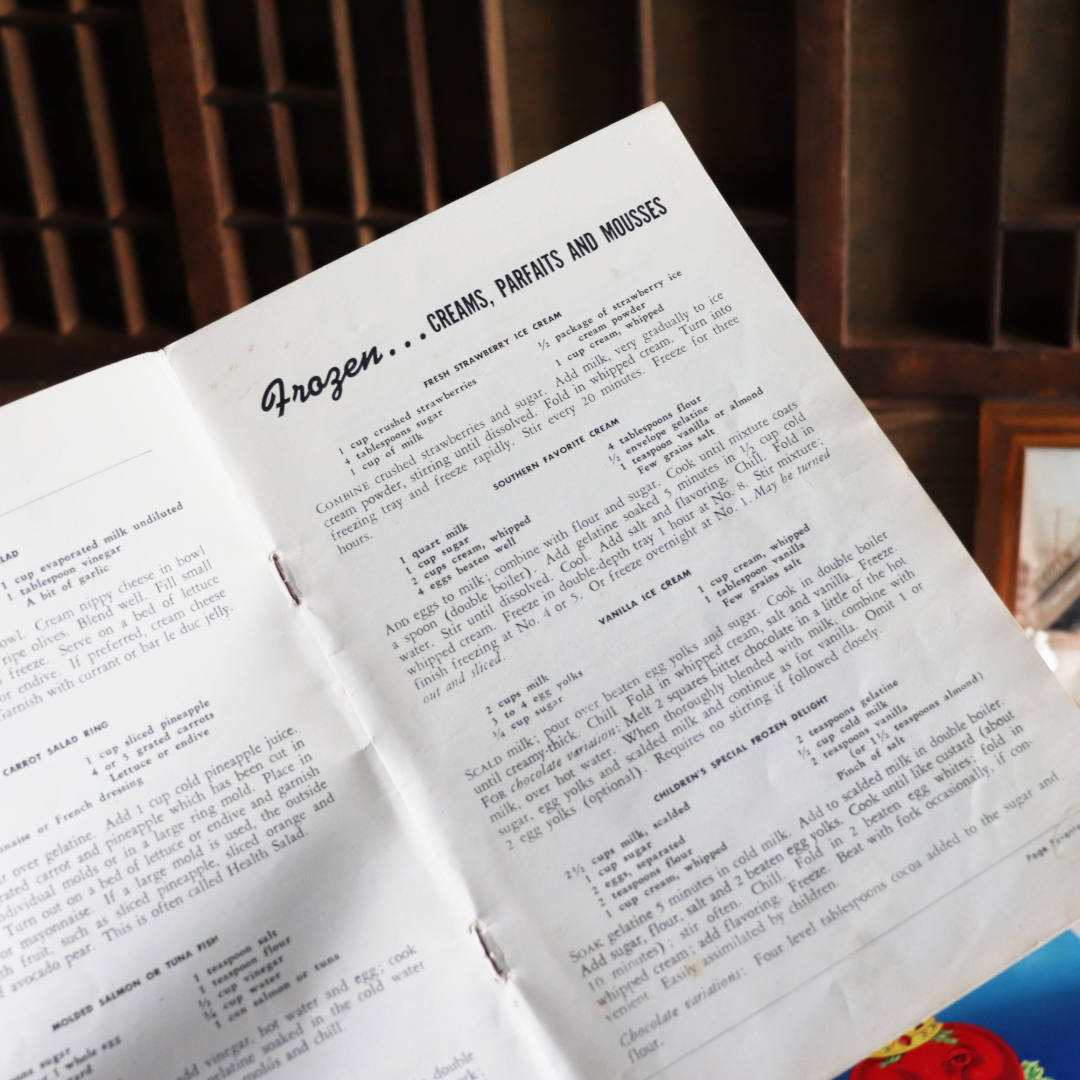 SALAD
1 cup evaporated milk undiluted
1 tablespoon vinegar
A bit of garlic
bowl. Cream nippy cheese in bowl
ripe olives. Blend well. Fill small
freeze. Serve on a bed of lettuce
or endive. If preferred, cream cheese
Garnish with currant or bar le duc jelly.
CARROT SALAD RING
1 cup sliced pineapple
4 or 5 grated carrots
Lettuce or endive
or French dressing
over gelatine. Add 1 cup cold pineapple juice.
carrot and pineapple which has been cut in
individual molds or in a large ring mold. Place in
Turn out on a bed of lettuce or endive and garnish
or mayonnaise. If a large mold is used, the outside
with fruit, such as sliced pineapple, sliced orange and
avocado pear. This is often called Health Salad.
MOLDED SALMON OR TUNA FISH
1 teaspoon salt
1 teaspoon flour
cup vinegar
cup water
1 can salmon or tuna
sugar
or 1 whole egg
add vinegar, hot water and egg; cook
gelatine soaked in the cold water
and chill.
double
Frozen...CREAMS, PARFAITS AND MOUSSES
FRESH STRAWBERRY ICE CREAM
1 cup crushed strawberries
4 tablespoons sugar
1 cup of milk
½ package of strawberry ice
cream powder
1 cup cream, whipped
COMBINE crushed strawberries and sugar. Add milk, very gradually to ice
cream powder, stirring until dissolved. Fold in whipped cream. Turn into
freezing tray and freeze rapidly. Stir every 20 minutes. Freeze for three
hours.
SOUTHERN FAVORITE CREAM
1 quart milk
1 cup sugar
2 cups cream, whipped
4 eggs beaten well
4 tablespoons flour
½ envelope gelatine
1 teaspoon vanilla or almond
Few grains salt
ADD eggs to milk; combine with flour and sugar. Cook until mixture coats
a spoon (double boiler). Add gelatine soaked 5 minutes in ½ cup cold
water. Stir until dissolved. Cool. Add salt and flavoring. Chill. Fold in
whipped cream. Freeze in double-depth tray 1 hour at No. 8. Stir mixture;
finish freezing at No. 4 or 5. Or freeze overnight at No. 1. May be turned
out and sliced.
VANILLA ICE CREAM
2 cups milk
3 to 4 egg yolks
¾ cup sugar
1 cup cream, whipped
1 tablespoon vanilla
Few grains salt
SCALD milk; pour over beaten egg yolks and sugar. Cook in double boiler
until creamy-thick. Chill. Fold in whipped cream, salt and vanilla. Freeze.
FOR chocolate variation: Melt 2 squares bitter chocolate in a little of the hot
milk, over hot water. When thoroughly blended with milk, combine with
sugar, egg yolks and scalded milk and continue as for vanilla. Omit 1 or
2 egg yolks (optional). Requires no stirring if followed closely.
CHILDREN'S SPECIAL FROZEN DELIGHT
2½ cups milk, scalded
1 cup sugar
2 eggs, separated
2 teaspoons flour
1 cup cream, whipped
2 teaspoons gelatine
½ cup cold milk
2 teaspoons vanilla
(or 1½ teaspoons almond)
Pinch of salt
SOAK gelatine 5 minutes in cold milk. Add to scalded milk in double boiler.
Add sugar, flour, salt and 2 beaten egg yolks. Cook until like custard (about
10 minutes); stir often. Chill. Fold in 2 beaten egg whites; fold in
whipped cream; add flavoring. Freeze. Beat with fork occasionally, if con-
venient. Easily assimilated by children.
Chocolate variations: Four level tablespoons cocoa added to the sugar and
flour.
Page